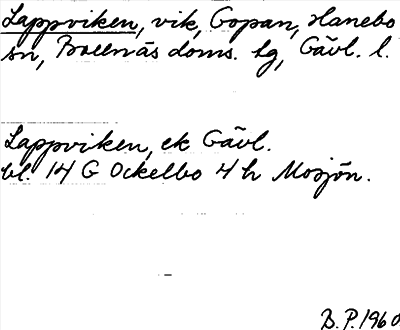 Lappviken, vik, Gopan, Hanebo
sn, Bollnäs doms. hg, Gävl. l.
Lappviken, ek Gävl.
bl. 14 G Ockelbo 4 h Mosjön.
B.P. 1960